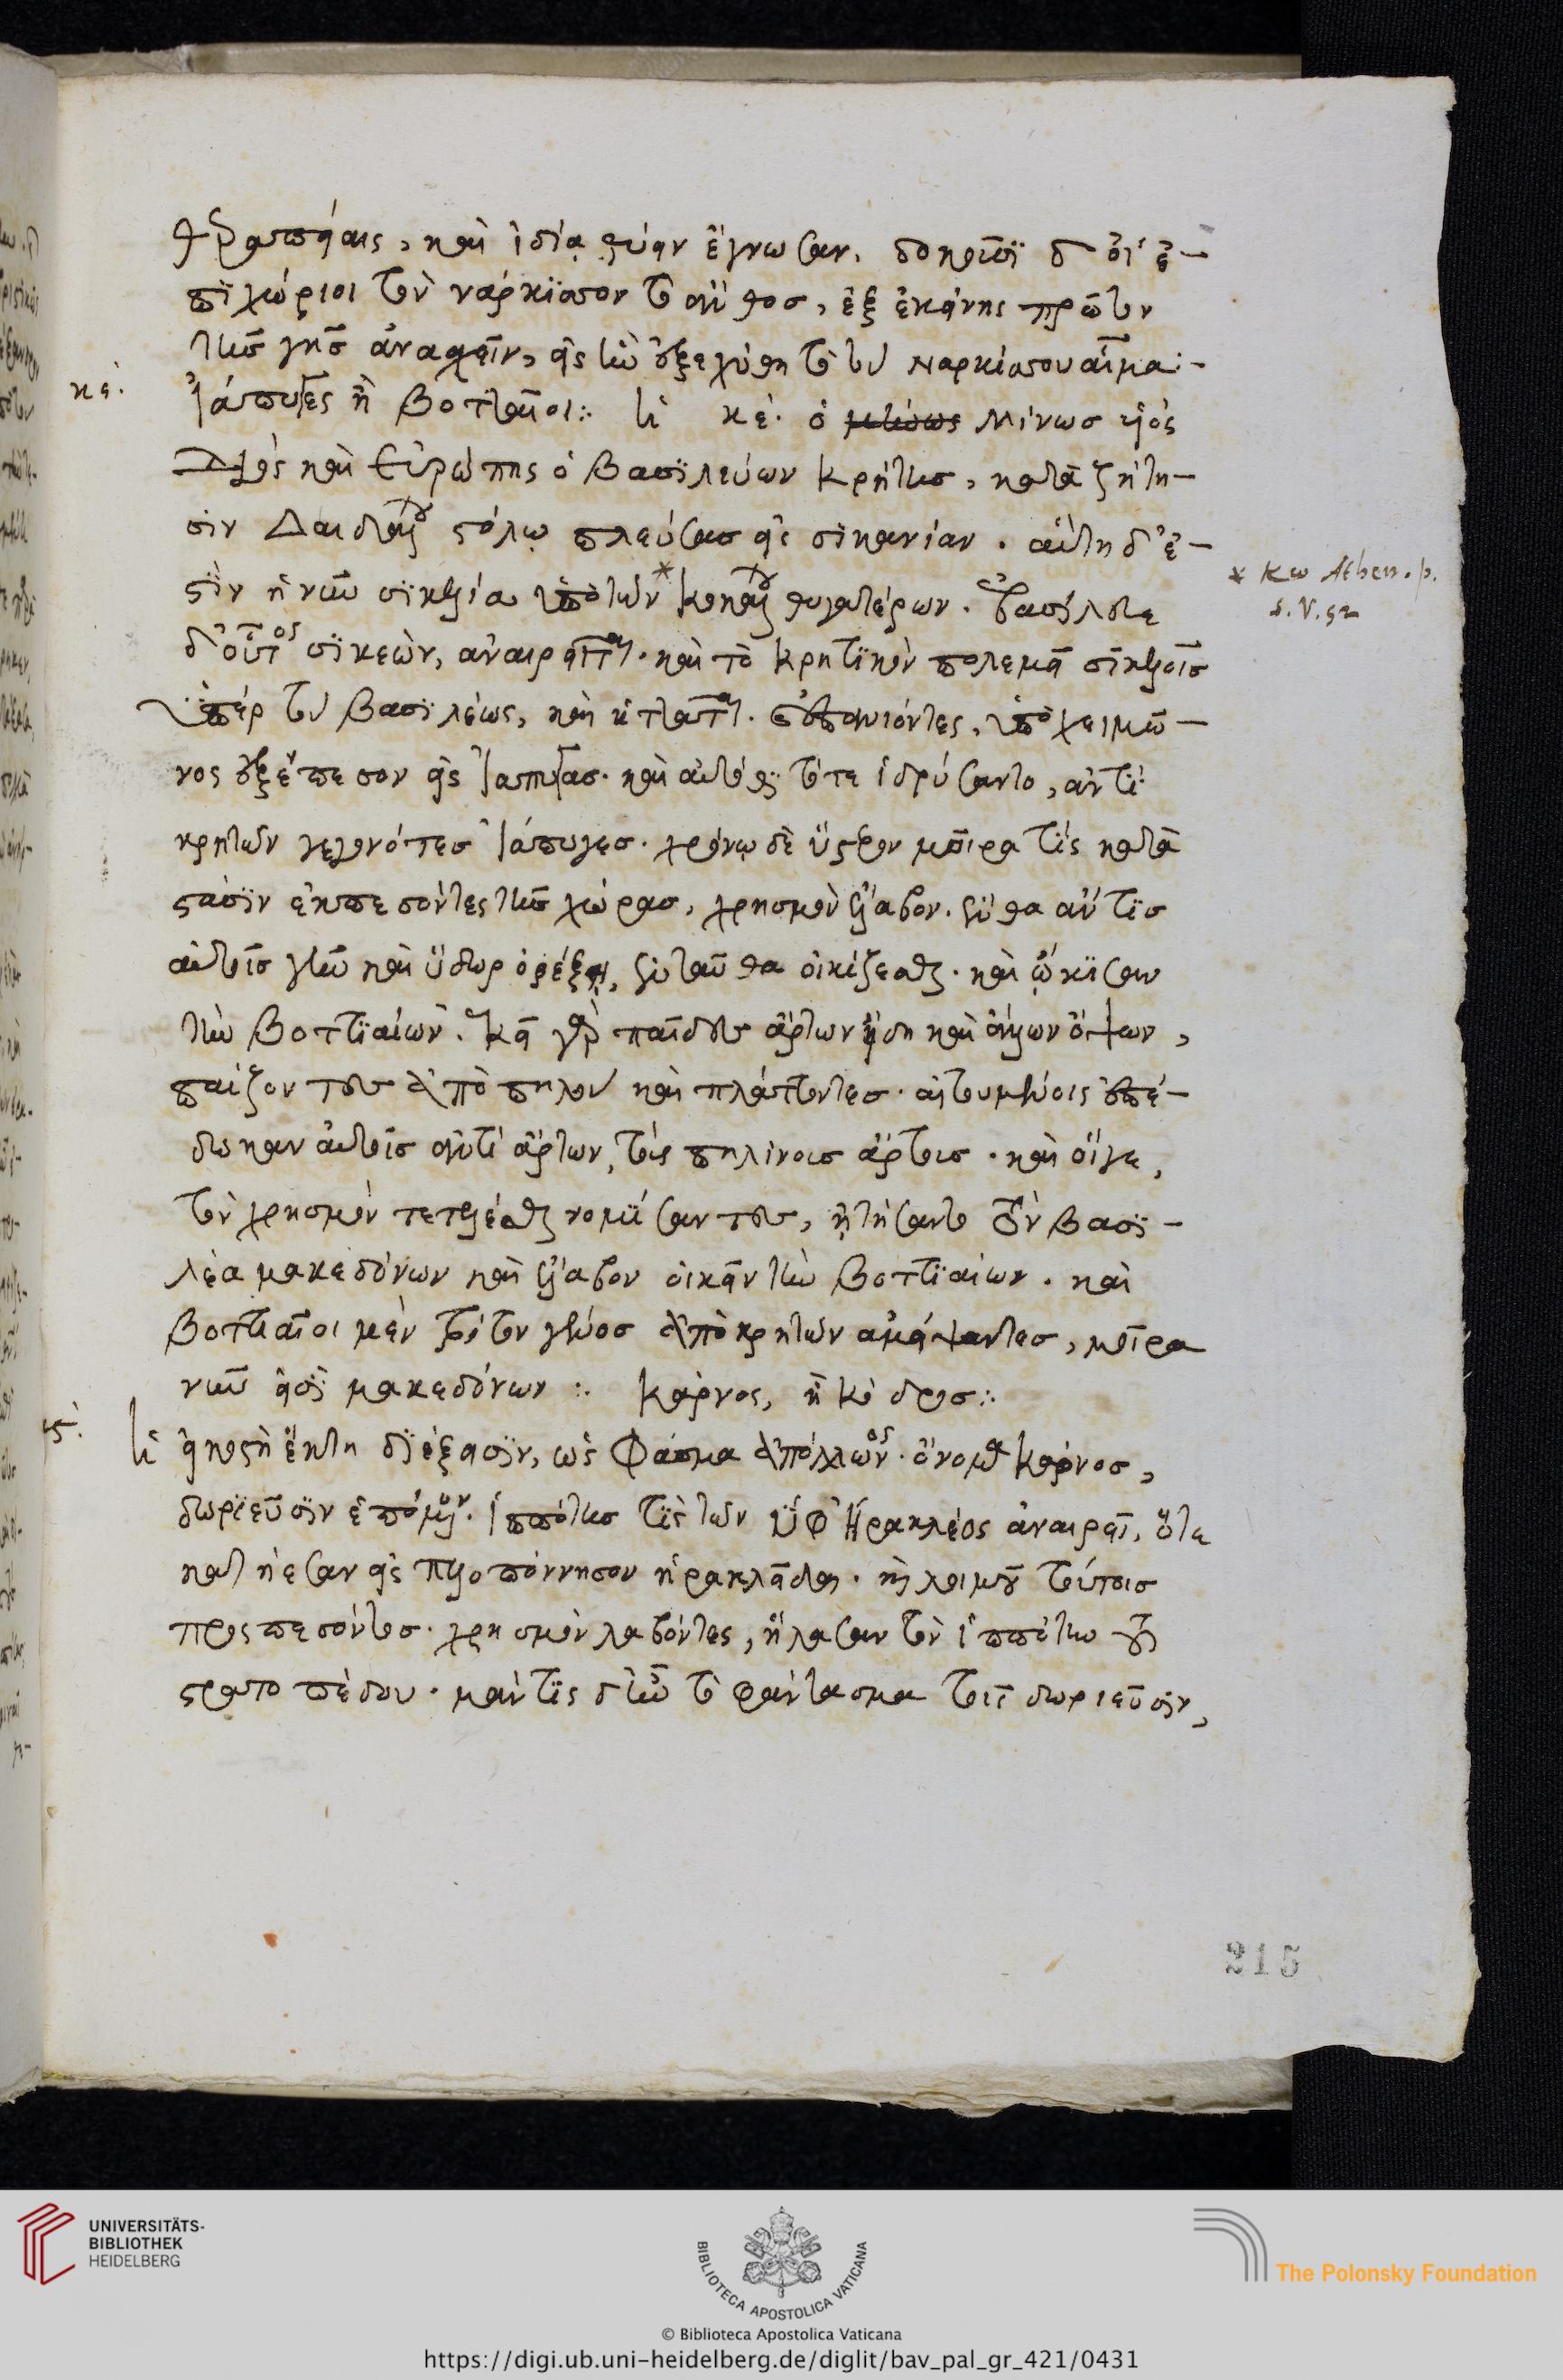 θεραπείαις, καὶ ἰδίᾳ θύειν ἔγνωσαν. δοκοῦσι δ' οἱ ἐ-
πιχώριοι τὸν νάρκισσον τὸ ἄνθος, ἐξ ἐκείνης πρῶτον
τῆς γῆς ἀνασχεῖν, εἰς ἣν ἐξεχύθη τὸ τοῦ Ναρκίσσου αἷμα:-
κε. Ἰάπυγες ἢ Βοττιαῖοι: ἡ κε. ὁ Μίνως υἱὸς
Διὸς καὶ Εὐρώπης ὁ βασιλεύων Κρήτης, κατὰ ζήτη-
σιν Δαιδάλου στόλῳ πλεύσας εἰς σικανίαν. αὕτη δ' ἐ-
στὶν ἡ νῦν σικελία ὑπὸ τῶν* Κωκάλου θυγατέρων. ἐβασίλευε
δ' οὗτος σικελῶν, ἀναιρεῖται. καὶ τὸ κρητικὸν πολεμεῖ σικελοῖς
ὑπὲρ τοῦ βασιλέως, καὶ ἡττᾶται. ἐπανιόντες, ὑπὸ χειμῶ-
νος ἐξέπεσον εἰς Ἰάπυγας. καὶ αὐτόθι τότε ἱδρύσαντο, ἀντὶ
κρητῶν γεγονότες Ἰάπυγες. χρόνῳ δὲ ὕστερον μοῖρα τις κατὰ
στάσιν ἐκπεσόντες τῆς χώρας, χρησμὸν ἔλαβον. ἔνθα ἄν τις
αὐτοῖς γῆν καὶ ὕδωρ ὀρέξῃ, ἐνταῦθα οἰκίζεσθαι. καὶ ᾤκισαν
τὴν Βοττιαίων. ἐκεῖ γὰρ παῖδες ἄρτων εἴδη καὶ ἄλλων ὄψων,
παίζοντες ἀπὸ πηλοῦ καὶ πλάττοντες. αἰτουμένοις ἐπέ-
δωκαν αὐτοῖς ἀντὶ ἄρτων, τοὺς πηλίνους ἄρτους. καὶ οἵγε,
τὸν χρησμὸν τετελέσθαι νομίσαντες, ᾐτήσαντο τὸν βασι-
λέα μακεδόνων καὶ ἔλαβον οἰκεῖν τὴν Βοττιαίων. καὶ
Βοττιαῖοι μὲν τρίτον γένος ἀπὸ κρητῶν ἀμείψαντες, μοῖρα
νῦν εἰσὶ μακεδόνων :. Κάρνος, ἢ κό δρος:.
κϛ. ἡ εἰκοστὴ ἕκτη διέξεισιν, ὡς φάσμα ἀπόλλωνος. ὄνομα Κάρνος,
δωριεῦσιν ἑπόμενον. ἱππότης τὶς τῶν ὑφ' Ἡρακλέος ἀναιρεῖ, ὅτε
κατῄεσαν εἰς Πελοπόννησον ἡρακλεῖδαι. καὶ λοιμοῦ τούτοις
προσπεσόντος. χρησμὸν λαβόντες, ἤλασαν τὸν ἱππότην τοῦ
στρατοπέδου. μάντις δ' ἦν τὸ φάντασμα τοῖς δωριεῦσιν,
* Κω Athen. p.
215
UNIVERSITÄTS-
BIBLIOTHEK
HEIDELBERG
BIBLIOTECA APOSTOLICA VATICANA
The Polonsky Foundation
© Biblioteca Apostolica Vaticana
https://digi.ub.uni-heidelberg.de/diglit/bav_pal_gr_421/0431